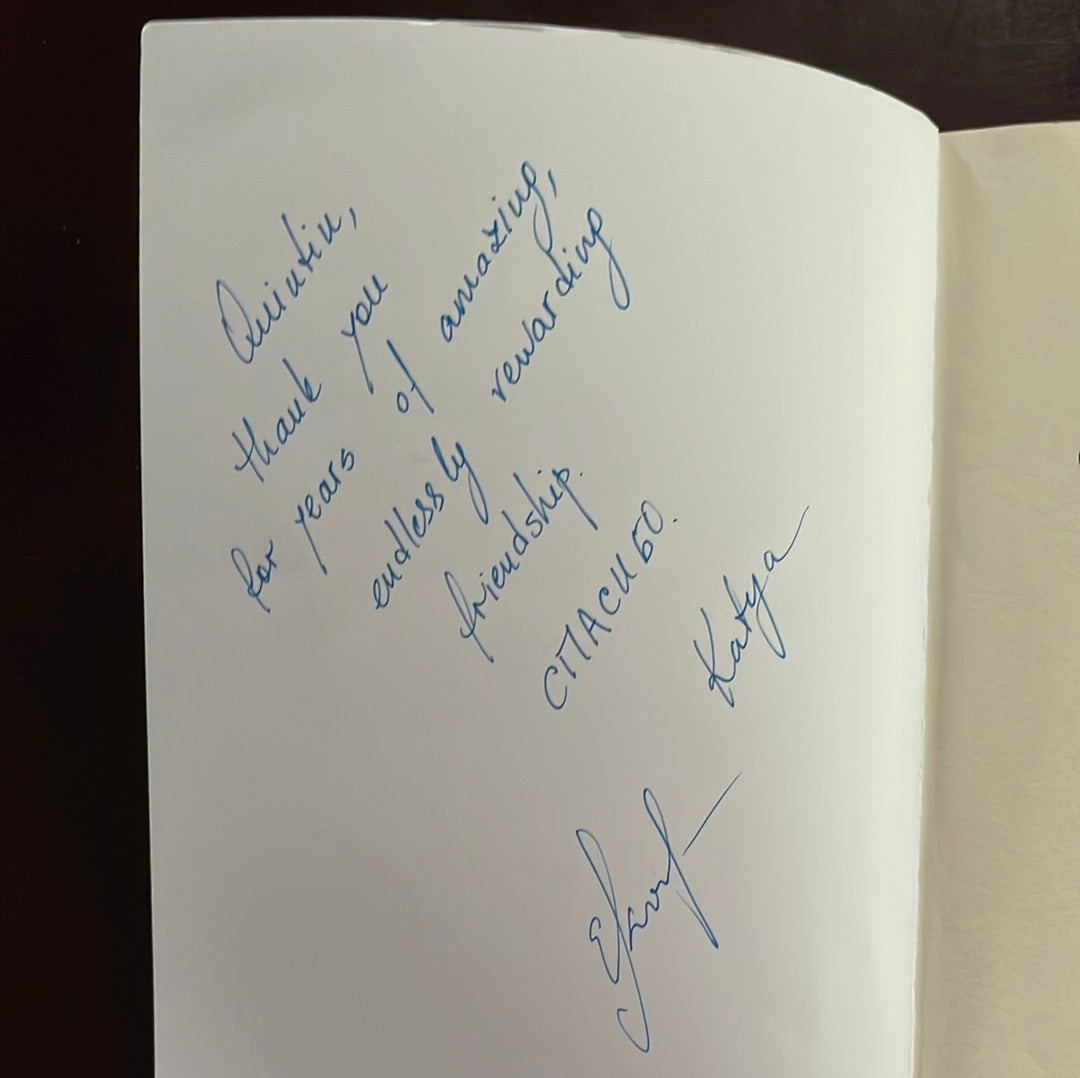 Quintin,
thank you
for years of amazing,
endlessly rewarding
friendship.
СПАСИБО.
Katya